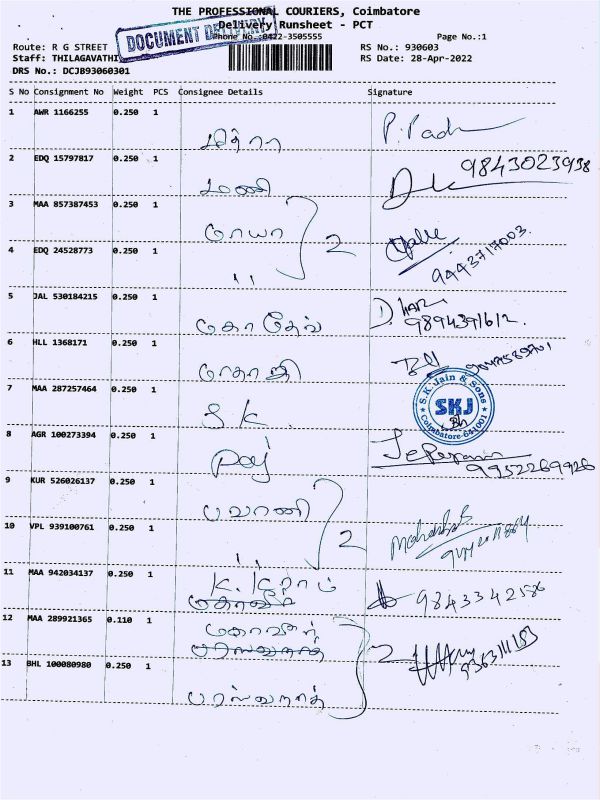 THE PROFESSIONAL COURIERS, Coimbatore
Delivery Runsheet - PCT
DOCUMENT DELIVERY
Phone No.:0422-3505555
Page No.:1
Route: R G STREET
RS No.: 930603
Staff: THILAGAVATHI
RS Date: 28-Apr-2022
DRS No.: DCJB93060301
S No Consignment No Weight PCS Consignee Details Signature
1 AWR 1166255 0.250 1
மித்ரா P. Padh
2 EDQ 15797817 0.250 1
மணி 9843023938
3 MAA 857387453 0.250 1
2
4 EDQ 24528773 0.250 1
" 9443717003.
5 JAL 530184215 0.250 1
D. HARI
9894391612.
6 HLL 1368171 0.250 1
7 MAA 287257464 0.250 1
S K. S.K. Jain & Sons SKJ Coimbatore-641001
8 AGR 100273394 0.250 1
9952269926
9 KUR 526026137 0.250 1
பவானி 2
10 VPL 939100761 0.250 1
"
11 MAA 942034137 0.250 1
9843342586
12 MAA 289921365 0.110 1
மகாவீர் 2
13 BHL 100080980 0.250 1
பரஸ்வநாத்